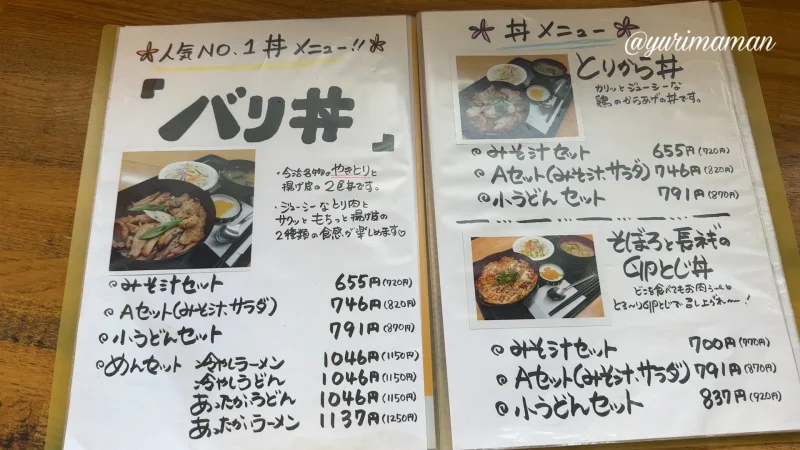 人気NO.1丼メニュー!!
『バリ丼』
・今治名物のやきとりと
揚げ皮の2色丼です。
・ジューシーなとり肉と
サクッともちっと揚げ皮の
2種類の食感が楽しめます♡
みそ汁セット 655円(720円)
Aセット(みそ汁、サラダ) 746円(820円)
小うどんセット 791円(870円)
めんセット 冷やしラーメン 1046円(1150円)
冷やしうどん 1046円(1150円)
あったかいうどん 1046円(1150円)
あったかいラーメン 1137円(1250円)
丼メニュー
@yurimaman
とりから丼
カリッとジューシーな
鶏のからあげの丼です。
みそ汁セット 655円(720円)
Aセット(みそ汁、サラダ) 746円(820円)
小うどんセット 791円(870円)
そぼろと長ネギの
玉子とじ丼
どこを食べてもお肉う〜
とろ〜り玉子とじで召し上がれ〜!
みそ汁セット 700円(770円)
Aセット(みそ汁、サラダ) 791円(870円)
小うどんセット 837円(920円)